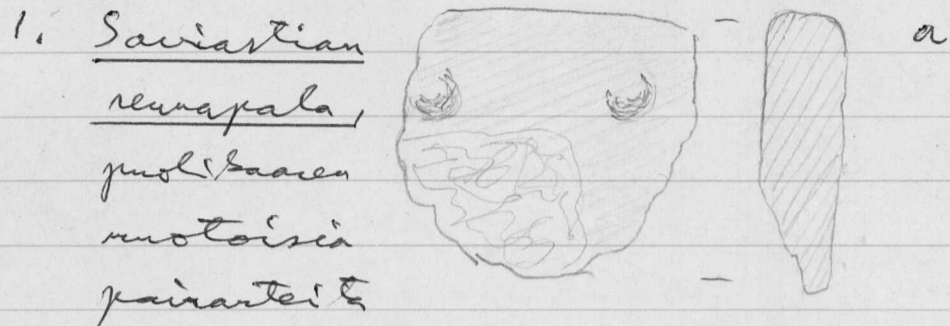 1. Saviastian a
reunapala,
puolikaaren
muotoisia
painanteita